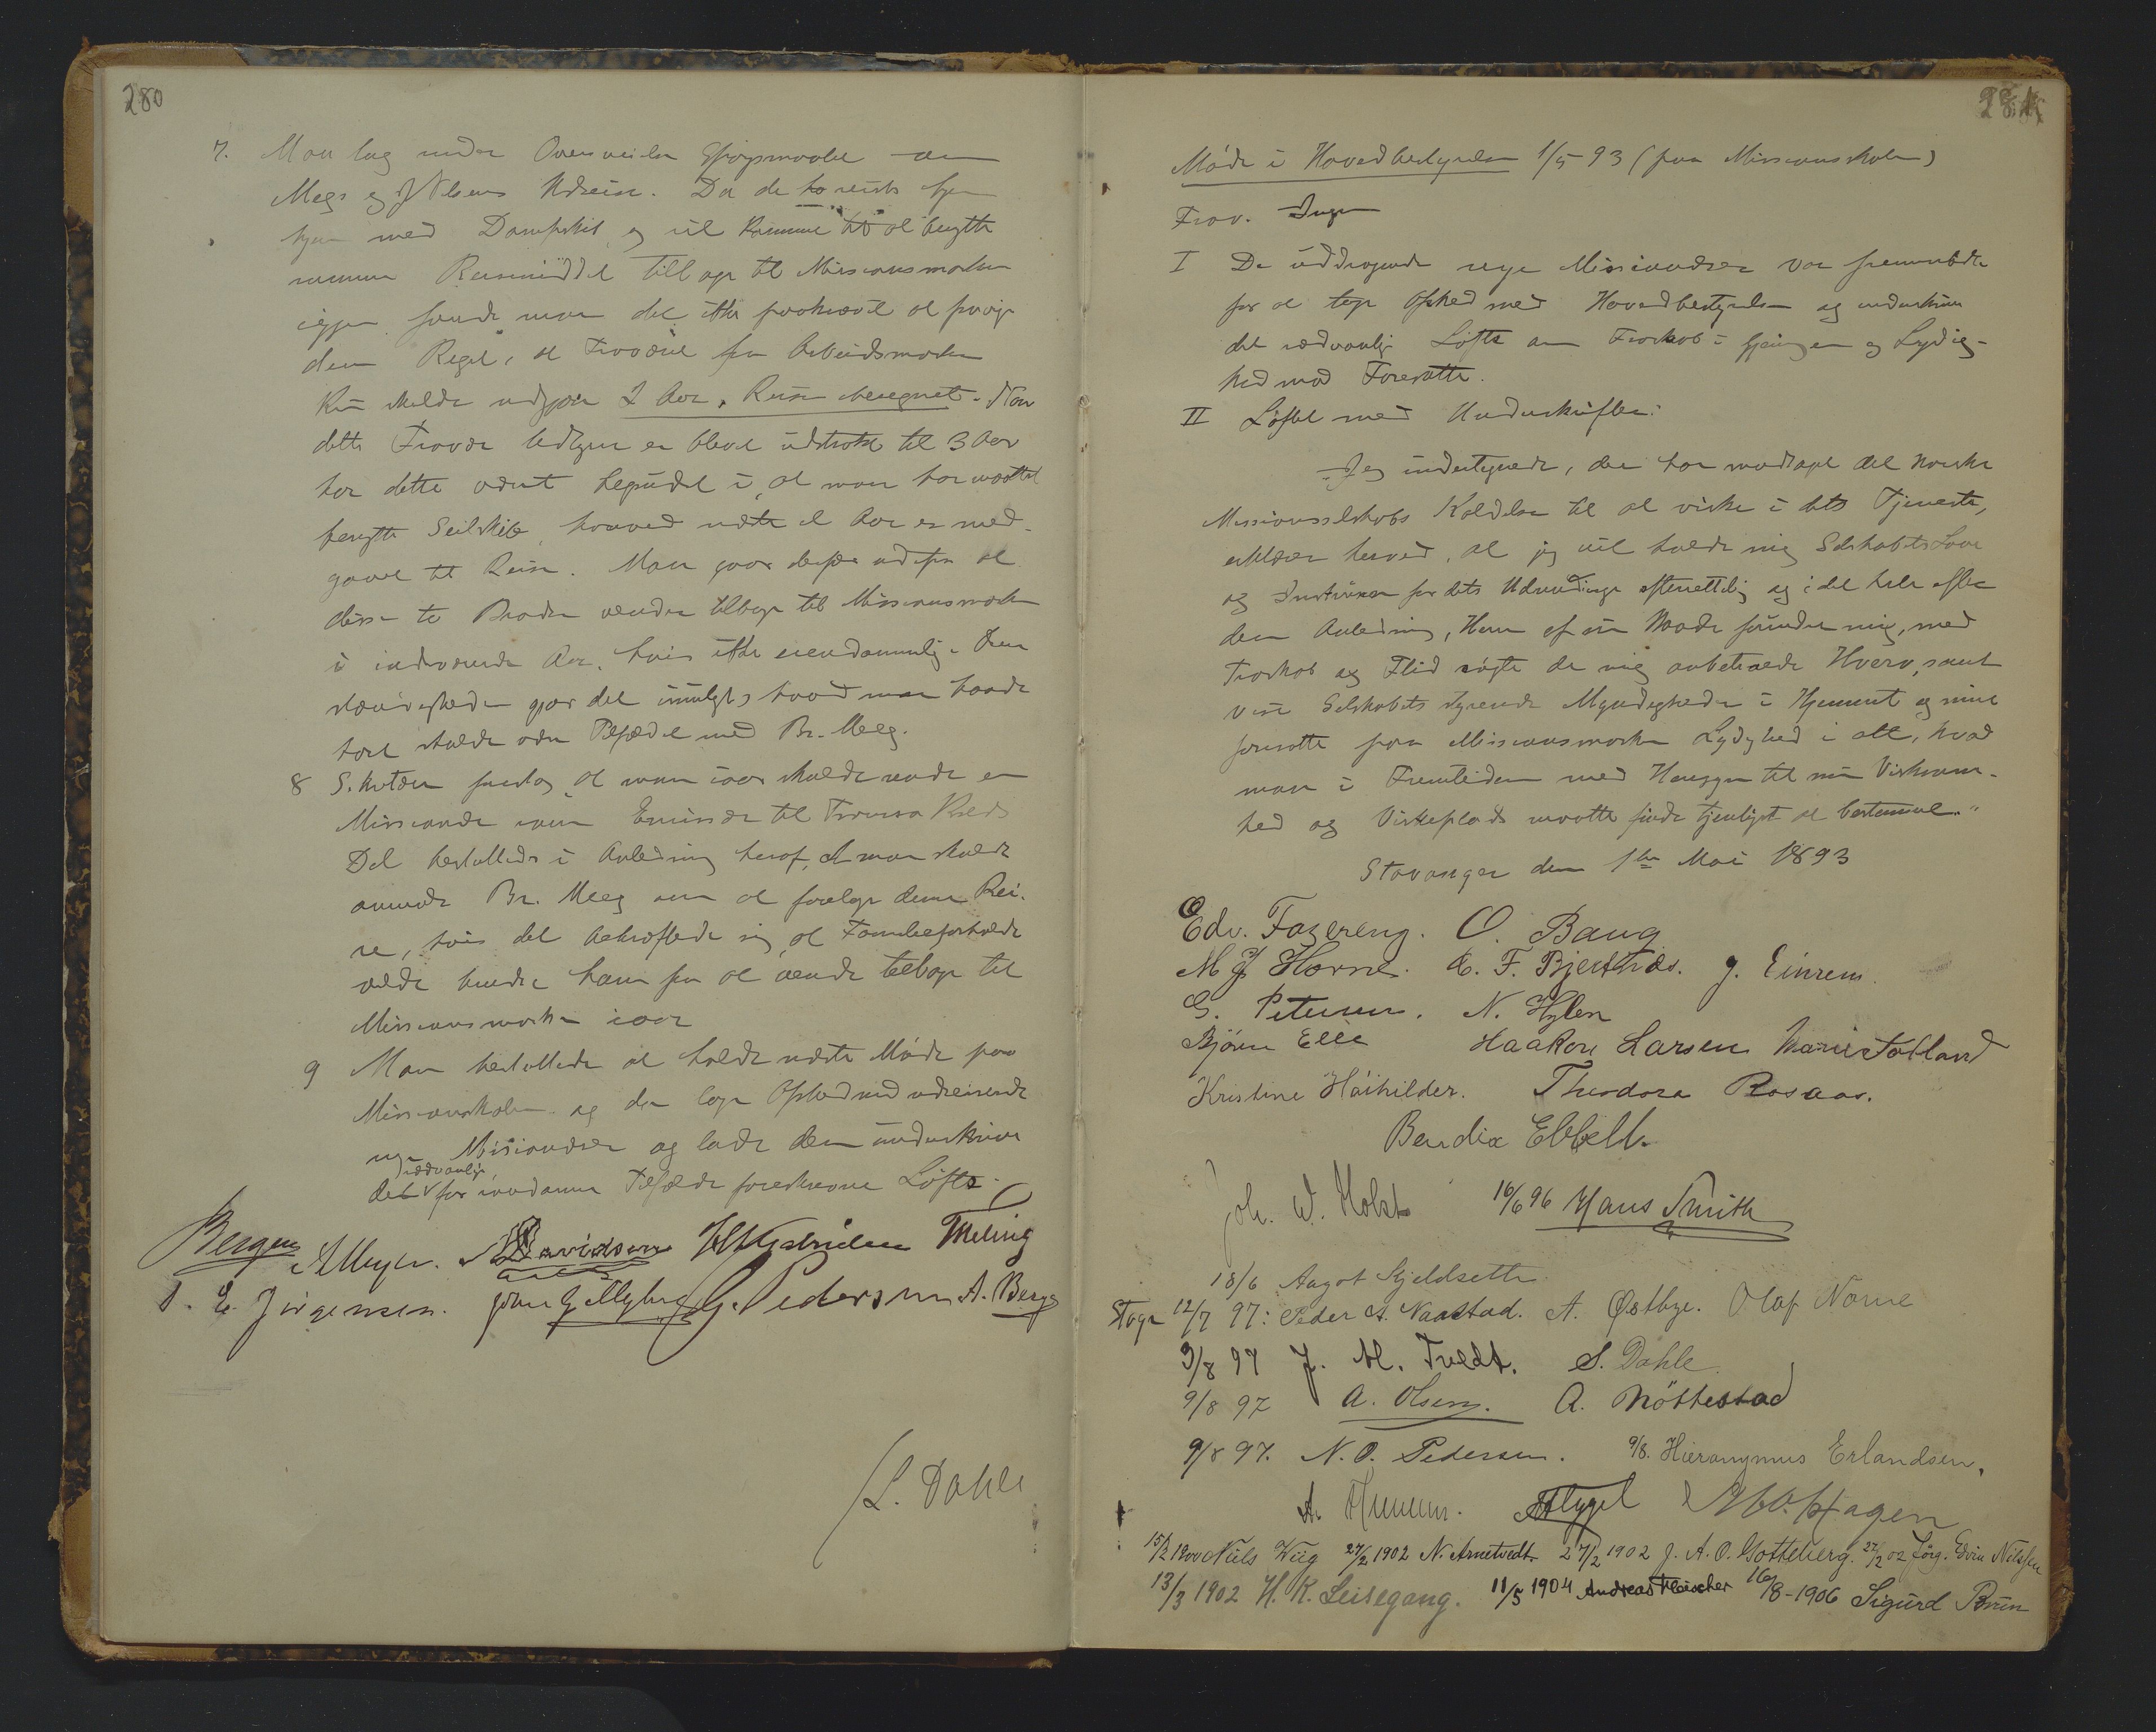 280
7. Man tog under Overveielse Spørgsmaalet om
Meegs og J Nilsens Udreise. Da de to reiste hjem
hjem med Dampskib og vil komme til at benytte
samme Reisemiddel tilbage til Missionsmarken
igjen fandt man det ikke paakrævet at fravige
den Regel, at Fravær fra Arbeidsmarken
kun skulde udgjøre 2 Aar, Reisen beregnet. Naar
dette Fravær tidligere er blevet udstrakt til 3 Aar
har dette været begrundet i, at man har maattet
benytte Seilskib, hvorved næsten et Aar er med-
gaaet til Reisen. Man gaar derfor ud fra at
disse to Brødre vender tilbage til Missionsmarken
i indeværende Aar, hvis ikke eiendommelige Om
stændigheder gjør det umuligt, hvad man havde
hørt skulde være Tilfældet med Br. Meeg.
8 S. foreslog at man iaar skulde sende en
Missionær som Emissær til Tromsø Kreds
Det besluttedes i Anledning heraf, at man skulde
anmode Br. Meeg om at foretage denne Rei-
se, hvis det bekræftede sig, at Familieforholde
vilde hindre ham fra at vende tilbage til
Missionsmarken iaar
9 Man besluttede at holde næste Møde paa
Missionsskolen og der tage Afsked med udreisende
nye Missionærer og lade dem underskrive
det sædvanlige for saadanne Tilfælde foreskrevne Løfte.
Bergen A Meyer. Davidsen Meling
S. E. Jörgensen. G. Pedersen A. Berge
L. Dahle
281
Møde i Hovedbestyrelsen 1/5 93 (paa Missionsskolen)
Frav. Ingen
I De uddragende nye Missionærer var fremmødte
for at tage Afsked med Hovedbestyrelsen og underskrive
det sædvanlige Løfte om Troskab i Gjerningen og Lydig-
hed mod Foresatte.
II Løftet med Underskrifter:
"Jeg undertegnede, der har modtaget det Norske
Missionsselskabs Kaldelse til at virke i dets Tjeneste,
erklærer herved, at jeg vil holde mig Selskabets Love
og Instruxer for dets Udsendinge efterrettelig og i det hele efter
den Anledning, Herren af sin Naade forunder mig, med
Troskab og Flid røgte de mig anbetroede Hverv, samt
vise Selskabets styrende Myndigheder i Hjemmet og mine
foresatte paa Missionsmarken Lydighed i alt, hvad
man i Fremtiden med Hensyn til min Virksom-
hed og Virkeplads maatte finde tjenligst at bestemme."
Stavanger den 1ste Mai 1893
Edv. Fagereng. O. Baug
M J Horne. E. F. Bjertnæs. J. Einrem.
G. Petersen. N. Hylen
Bjørn Elle Haakon Larsen Marie Føtland
Kristine Håihilder. Theodora Rosaas.
Bendix Ebbell.
Joh. W. Holst 16/6 96 Hans Smith
18/6 Aagot Kjeldseth
Stvgr 12/7 97: Peder A. Naastad. A. Østbye. Olaf Norne
9/8 97 J. M. Tvedt. S. Dahle
9/8 97 A. Olsen. A. Nöttestad
9/8 97. N. O. Pedersen. 9/8. Hieronymus Erlandsen.
A. Flygel M. O. Hagen
15/2 1900 Nils Wiig 27/2 1902 N. Arnetvedt 27/2 1902 J. A. O. Gotteberg. 27/2 02 Jörg. Edvin Nilssen
13/3 1902 H. K. Leisegang. 11/5 1904 Andreas Fleischer 16/8-1906 Sigurd Bruun